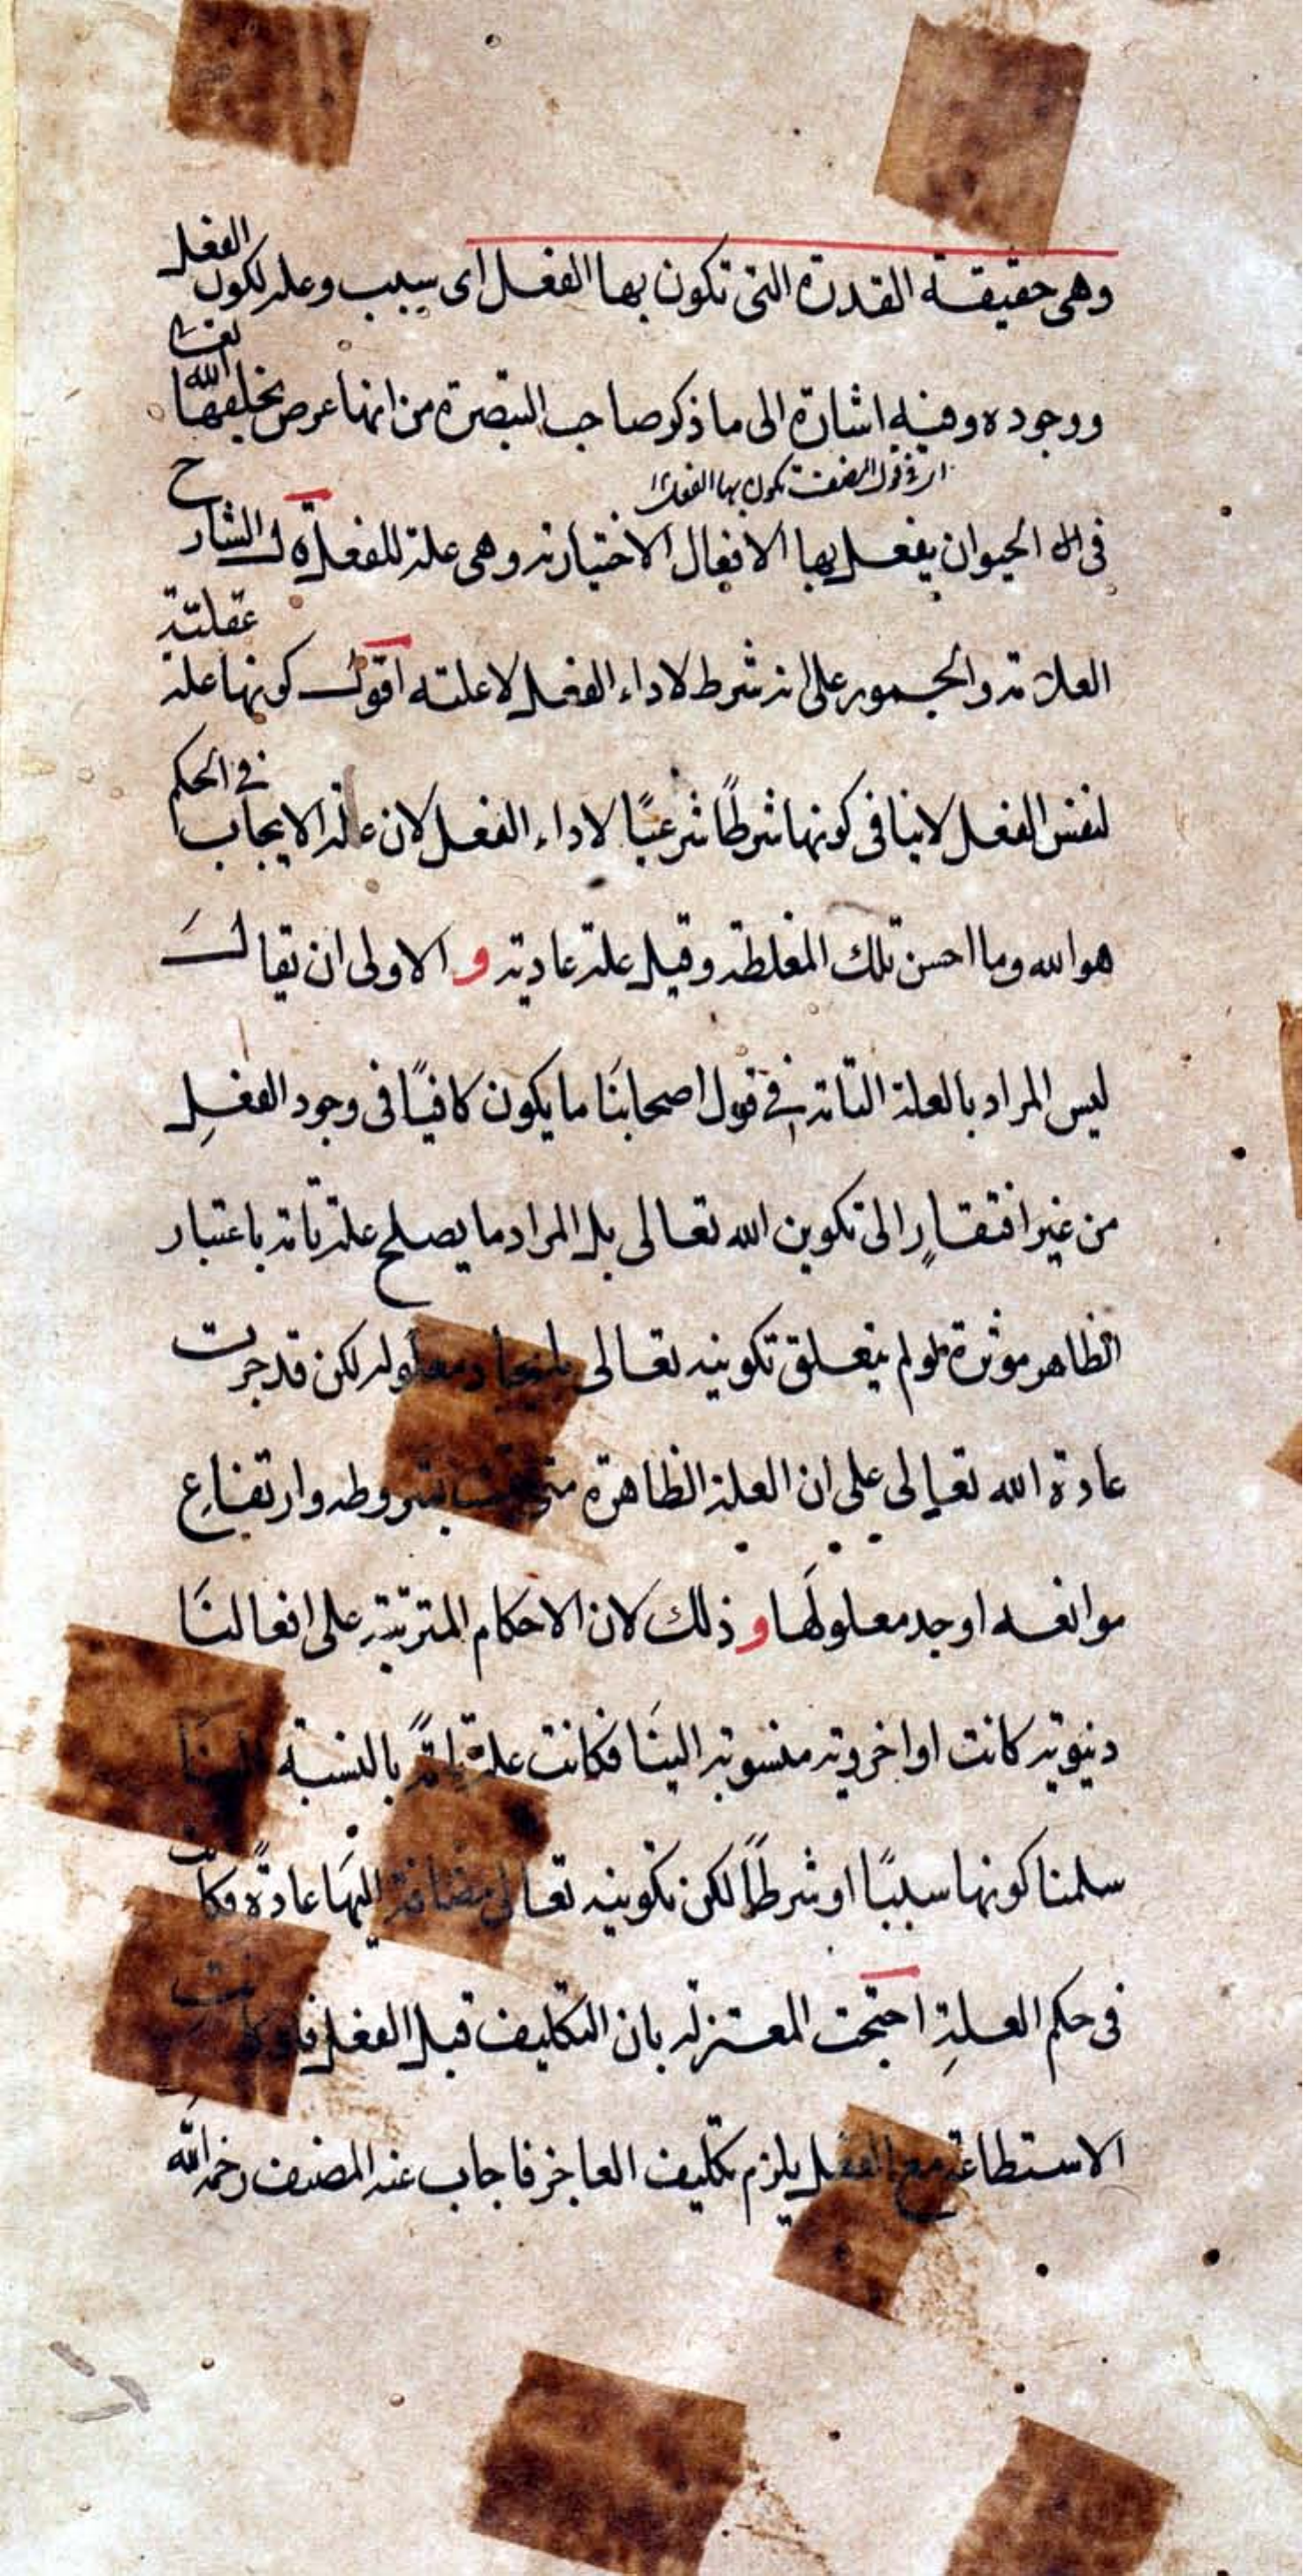 وهى حقيقة القدرة التى تكون بها الفعل اى سبب وعلة لكون الفعل
ووجوده وفيه اشارة الى ما ذكر صاحب التبصرة من انها عرض يخلقها الله تعا
فى قول المصنف تكون بها الفعل
فى الحيوان يفعل بها الافعال الاختيارية وهى علة للفعل قال الشارح
العلامة والجمهور على انه شرط لاداء الفعل لا علته اقول كونها علة عقلية
لنفس الفعل لا ينافى كونها شرطًا شرعيًا لاداء الفعل لان علة الايجاب فى الحكم
هو الله وما احسن تلك المغلطة وقيل علة عادية و الاولى ان يقال
ليس المراد بالعلة التامة فى قول اصحابنا ما يكون كافيًا فى وجود الفعل
من غير افتقار الى تكوين الله تعالى بل المراد ما يصلح علة تامة باعتبار
الظاهر موثرة لو لم يتعلق تكوينه تعالى بايجاد معلوله لكن قد جرت
عادة الله تعالى على ان العلة الظاهرة متى بشروطه وارتفاع
موانعه اوجد معلولها و ذلك لان الاحكام المترتبة على افعالنا
دنيوية كانت او اخروية منسوبة الينا فكانت علة تامة بالنسبة الينا
سلمنا كونها سببًا او شرطًا لكن تكوينه تعالى مضافة اليها عادةً فكانت
فى حكم العلة احتجت المعتزلة بان التكليف قبل الفعل فلو كانت
الاستطاعة مع الفعل يلزم تكليف العاجز فاجاب عنه المصنف رحمه الله